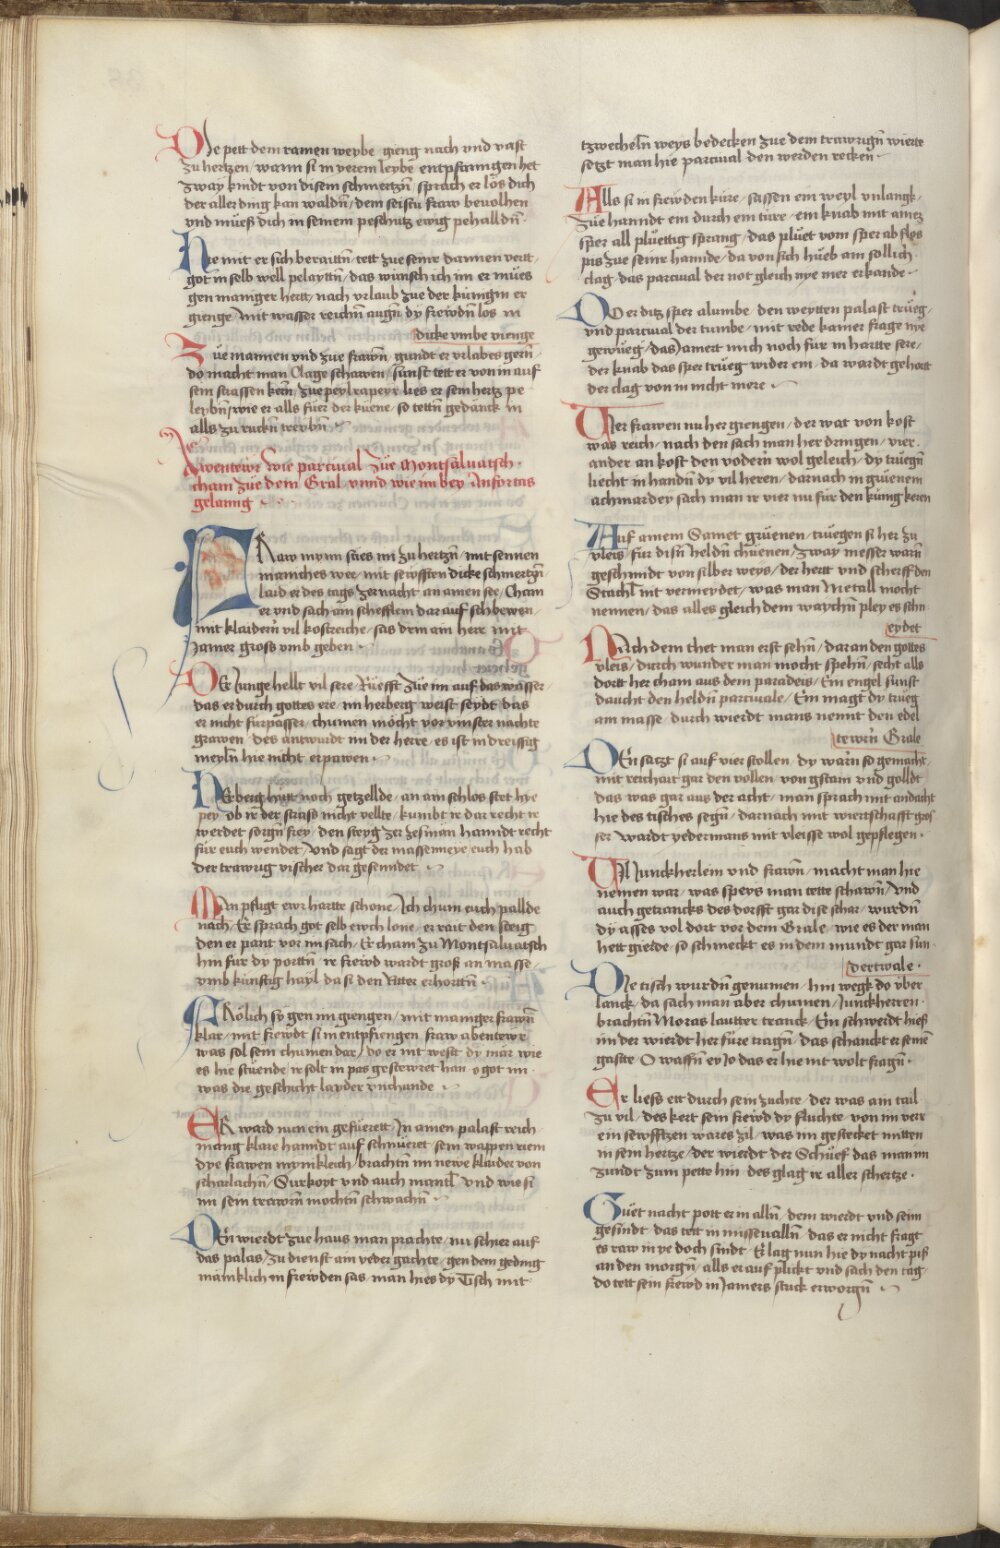 Die pett dem ramen weybe gieng nach vnd vast
zu hertzen / wann si in yerem leybe entpfanngen het
zway kindt von disem schmertzn / sprach er lös dich
der aller ding kan waldñ / dem seistu fraw beuolhen
vnd müeß dich in seinem peschutz ewig pehalldñ ·
Hie mit er sich beraittñ tett zue seiner dannen vertt ·
got in selb well pelayttñ / das wünsch ich im er mües
gen maniger hertt / nach vrlaub zue der künigin er
gienge / mit wasser reichñ augñ dy frewdñ los in
dicke vmbe vienge
Zue mannen vnd zue frawñ / gundt er vrlabes gerñ ·
do macht man Clage schawen / sunst tett er von in auf
sein strassen kerñ / zue peylrapeyr lies er sein hertz pe
leybñ / wie er alls füer der küene / so tettñ gedanck in
alls zu ruckñ treybñ ·
Awentewr wie parciual Zue Montsaluatsch ·
cham zue dem Gral / vnnd wie im bey Anfortas
gelanng
FRaw mynn süeß im zu hertzñ / mit sennen
maniches wee / mit sewfften dicke schmertzñ
laid er des tags / ze nacht an amen see / Cham
er vnd sach am schefflein dar auf schbewen
mit klaidern vil kostreiche / sas drin ain herr mit
Jamer gross vmb geben ·
DEr Junge hellt vil sere / Rüefft zue im auf das wasser ·
das er durch gottes ere / im herberg weist seydt das
er nicht fürpasser / chumen möcht vor vinster nachte
grawen / des antwurdt im der herre / es ist in dreissig
meylñ hie nicht erpawen ·
HErberg hütt noch getzellde / an ain schlos stet hye
pey / ob ir der strass nicht vellte / kumbt ir dar recht ir
werdet sorgñ frey / den steyg zer zesman hanndt recht
für euch wendet / vnd sagt der massenneye euch hab
der trawrig vischer dar gesenndet ·
Man pfligt ewr hartte schone / Ich chum euch pallde
nach / Er sprach got selb ewch lone / er rait den steig
den er pant vor im sach / Er cham zu Montsaluatsch
hin für dy porttñ / ir frewd wardt groß an masse
vmb künftig hayl da si den Ritter erhorttñ ·
FRölich sy gen im giengen / mit maniger frawñ
klar / mit frewdt si in entpfiengen / fraw abentewr
was sol sein chumen dar / do er nit westt dy mär wie
es hie stüende / ir solt in pas gestewret han / o got im
was die geschicht layder vnchunde ·
ER ward nun ein gefüerett / In amen palast reich ·
mang klare hanndt auf schnüeret / sein wappen riem
dye frawen mynikleich / brachtñ im newe klaider von
scharlachñ / Surkoyt vnd auch mantl vnd wie si
im sein trawrñ mochtñ schwachñ ·
DEn wierdt zue haus man prachte / nu schier auf
das palas / zu dienst am yeder gachte / gen dem geding
mäniklich in frewden sas / man hies dy Tisch mit
tzwecheln weys bedecken / zue dem trawrigñ wierte
setzt man hie parciual den werden recken ·
Alls si in frewden küre / sassen ein weyl vnlangk ·
zue hanndt ein durch ein türe / ein knab mit ainez
sper all pluettig sprang / das pluet vom sper ab flos
pis zue seiner hannde / da von sich hueb am sollich
clag / das parciual der not gleich nye mer erkande ·
DO er ditz sper alumbe / den weytten palast trueg ·
vnd parciual der tumbe / mit rede kainer frage nye
gewueg / das Jamert mich noch für in hartte sere /
der knab das sper trueg wider ein / da wardt gehortt
der clag von in nicht mere ·
Vier frawen nu her giengen / der wat von kost
was reich / nach den sach man her dringen / vier
ander an kost den vodern wol geleich / dy truegñ
liecht in handñ dy vil heren / darnach in grüenem
achmardey sach man ir vier nu für den künig keren
Auf ainem Samet grüenen / truegen si her zu
vleis / für disñ heldñ chüenen / zway messer warñ
geschmidt von silber weys / der hertt vnd scherff den
Stachl nit vermeydet / was man Metall mocht
nennen / das alles gleich dem waychñ pley es schn
eydet
Nach dem thet man erst sehñ / daran den gottes
vleis / durch wunder man mocht spehñ / secht alls
dortt her cham aus dem paradeis / Ein engel sunst
daucht den heldñ parciuale / Ein magt dy trueg
am masse durch wierdt mans nennt den edel
tewrñ Grale
DEn satzt si auf vier stollen / dy warñ so gemacht
mit reichart gar den vollen / von gstain vnd golldt
das was gar aus der acht / man sprach mit andacht
hie des tisches segñ / darnach mit wiertschafft gros
ser wardt yederman mit vleisse wol gepflegen ·
Vil Junckherlein vnd frawñ / macht man hie
nemen war / was speys man tette schawñ / Vnd
auch getrancks des dorfft gar dise schar / wurdñ
dy asses vol dort vor dem Grale / wie es der man
hett gierde / so schmeckt es in dem mundt gar sun
der twale ·
Die tisch wurdñ genumen / hin wegk do vber
lanck / da sach man aber chumen / Junckherren ·
brachtñ Moras lautter tranck / Ein schwerdt hieß
im der wierdt her füre tragñ / das schanckt er seinē
gastte · O waffñ ey Jo das er hie nit wolt fragñ ·
Er ließ ett durch sein zuchte / der was am tail
zu vil / des kert sein frewd dy fluchte / von im verr
ein sewfftzen wares zil / was im gestecket mitten
in sein hertze / der wierdt der Schuef das man im
zundt zum pette hin des glag ir aller schertze ·
Guet nacht pott er in allñ / dem wierdt vnd seim
gesindt / das tett in missuallñ / das er nicht fragt
es raw in ye doch sindt · Er lag nun hie dy nacht pis
an den morgñ / alls er auf plickt vnd sach den tag
do tett sein frewd in Jamers stuck erworgñ ·